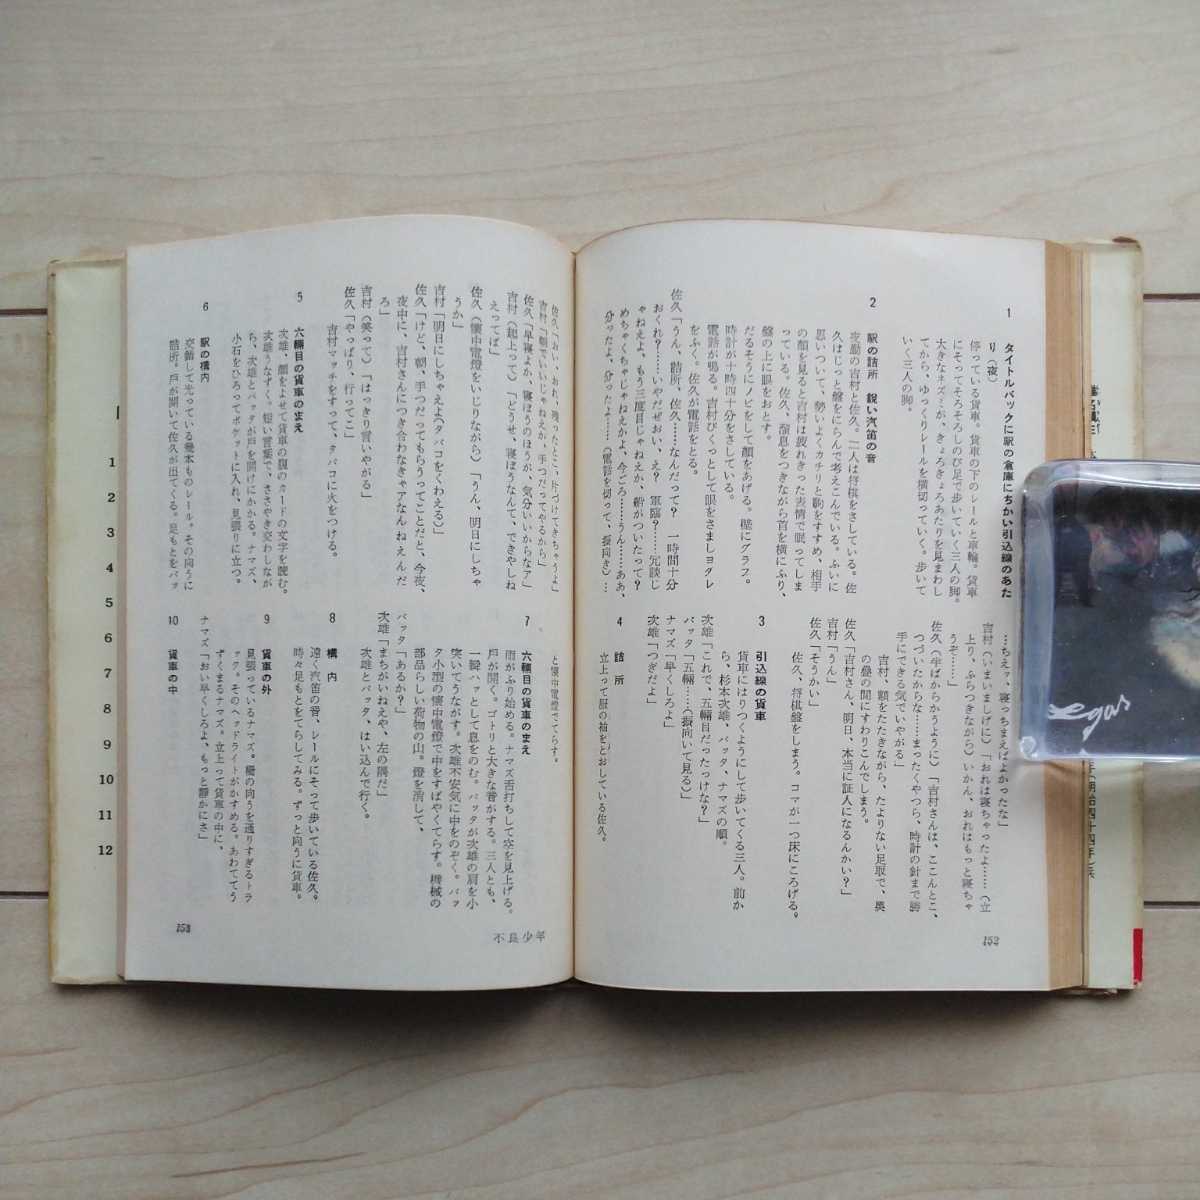 1　タイトルバックに駅の倉庫にちかい引込線のあた
り（夜）
停っている貨車。貨車の下のレールと車輪。貨車
にそってそろそろしのび足で歩いていく三人の脚。
大きなネズミが、きょろきょろあたりを見まわし
てから、ゆっくりレールを横切っていく。歩いて
いく三人の脚。
2　駅の詰所　鋭い汽笛の音
夜勤の吉村と佐久。二人は将棋をさしている。佐
久はじっと盤をにらんで考えこんでいる。ふいに
思いついて、勢いよくカチリと駒をすすめ、相手
の顔を見ると吉村は疲れきった表情で眠ってしま
っている。佐久、溜息をつきながら首を横にふり、
盤の上に眼をおとす。
時計が十時四十分をさしている。
だるそうにノビをして顔をあげる。壁にグラフ。
電話が鳴る。吉村びくっとして眼をさましヨダレ
をふく。佐久が電話をとる。
佐久「うん、詰所、佐久……なんだって？　一時間十分
おくれ？……いやだぜおい、え？　軍臨？……冗談じ
ゃねえよ、もう三度目じゃねえか、船がついたって？
めちゃくちゃじゃねえかよ、今ごろ……うん……ああ、
分ったよ、分ったよ……（電話を切って、振向き）…
…ちえッ、寝っちまえばよかったな」
吉村（いまいましげに）「おれは寝ちゃったよ……（立
上り、ふらつきながら）いかん、おれはもっと寝ちゃ
うぞ……」
佐久（半ばからかうように）「吉村さんは、ここんとこ、
つづいたからな……まったくやつら、時計の針まで勝
手にできる気でいやがる」
吉村、額をたたきながら、たよりない足取で、奥
の畳の間にすわりこんでしまう。
佐久「吉村さん、明日、本当に証人になるんかい？」
吉村「うん」
佐久「そうかい」
佐久、将棋盤をしまう。コマが一つ床にころげる。
3　引込線の貨車
貨車にはりつくようにして歩いてくる三人。前か
ら、杉本次雄、バッタ、ナマズの順。
次雄「これで、五輛目だったっけな？」
バッタ「五輛……（振向いて見る）」
ナマズ「早くしろよ」
次雄「つぎだよ」
4　詰所
立上って服の袖をとおしている佐久。
152
佐久「おい、おれ、残ったとこ、片づけてきちゃうよ」
吉村「朝でいいじゃねえか、手つだってやるから」
佐久「早寝よか、寝ぼうのほうが、気分いいからなア」
吉村（起上って）「どうせ、寝ぼうなんて、できやしね
えってば」
佐久（懐中電燈をいじりながら）「うん、明日にしちゃ
うか」
吉村「明日にしちゃえよ（タバコをくわえる）」
佐久「けど、朝、手つだってもらうってことだと、今夜、
夜中に、吉村さんにつき合わなきゃアなんねえんだ
ろ」
吉村マッチをすって、タバコに火をつける。
吉村（笑って）「はっきり言いやがる」
佐久「やっぱり、行ってこ」
5　六輛目の貨車のまえ
次雄、顔をよせて貨車の腹のカードの文字を読む。
次雄うなずく。短い言葉で、ささやき交わしなが
ら、次雄とバッタが戸を開けにかかる。ナマズ、
小石をひろってポケットに入れ、見張りに立つ。
6　駅の構内
交錯して光っている幾本ものレール。その向うに
詰所。戸が開いて佐久が出てくる。足もとをパッ
と懐中電燈でてらす。
7　六輛目の貨車のまえ
雨がふり始める。ナマズ舌打ちして空を見上げる。
戸が開く。ゴトリと大きな音がする。三人とも、
一瞬ハッとして息をのむ。バッタが次雄の肩を小
突いてうながす。次雄不安気に中をのぞく。バッ
タ小型の懐中電燈で中をすばやくてらす。機械の
部品らしい荷物の山。燈を消して、
バッタ「あるか？」
次雄「まちがいねえや、左の隅だ」
次雄とバッタ、はい込んで行く。
8　構内
遠く汽笛の音、レールにそって歩いている佐久。
時々足もとをてらしてみる。ずっと向うに貨車。
9　貨車の外
見張っているナマズ。柵の向うを通りすぎるトラ
ック。そのヘッドライトがかすめる。あわててう
ずくまるナマズ。立上って貨車の中に、
ナマズ「おい早くしろよ、もっと静かにさ」
10　貨車の中
153
不良少年
1
2
3
4
5
6
7
8
9
10
11
12
egas
年（明治四十四年）兵